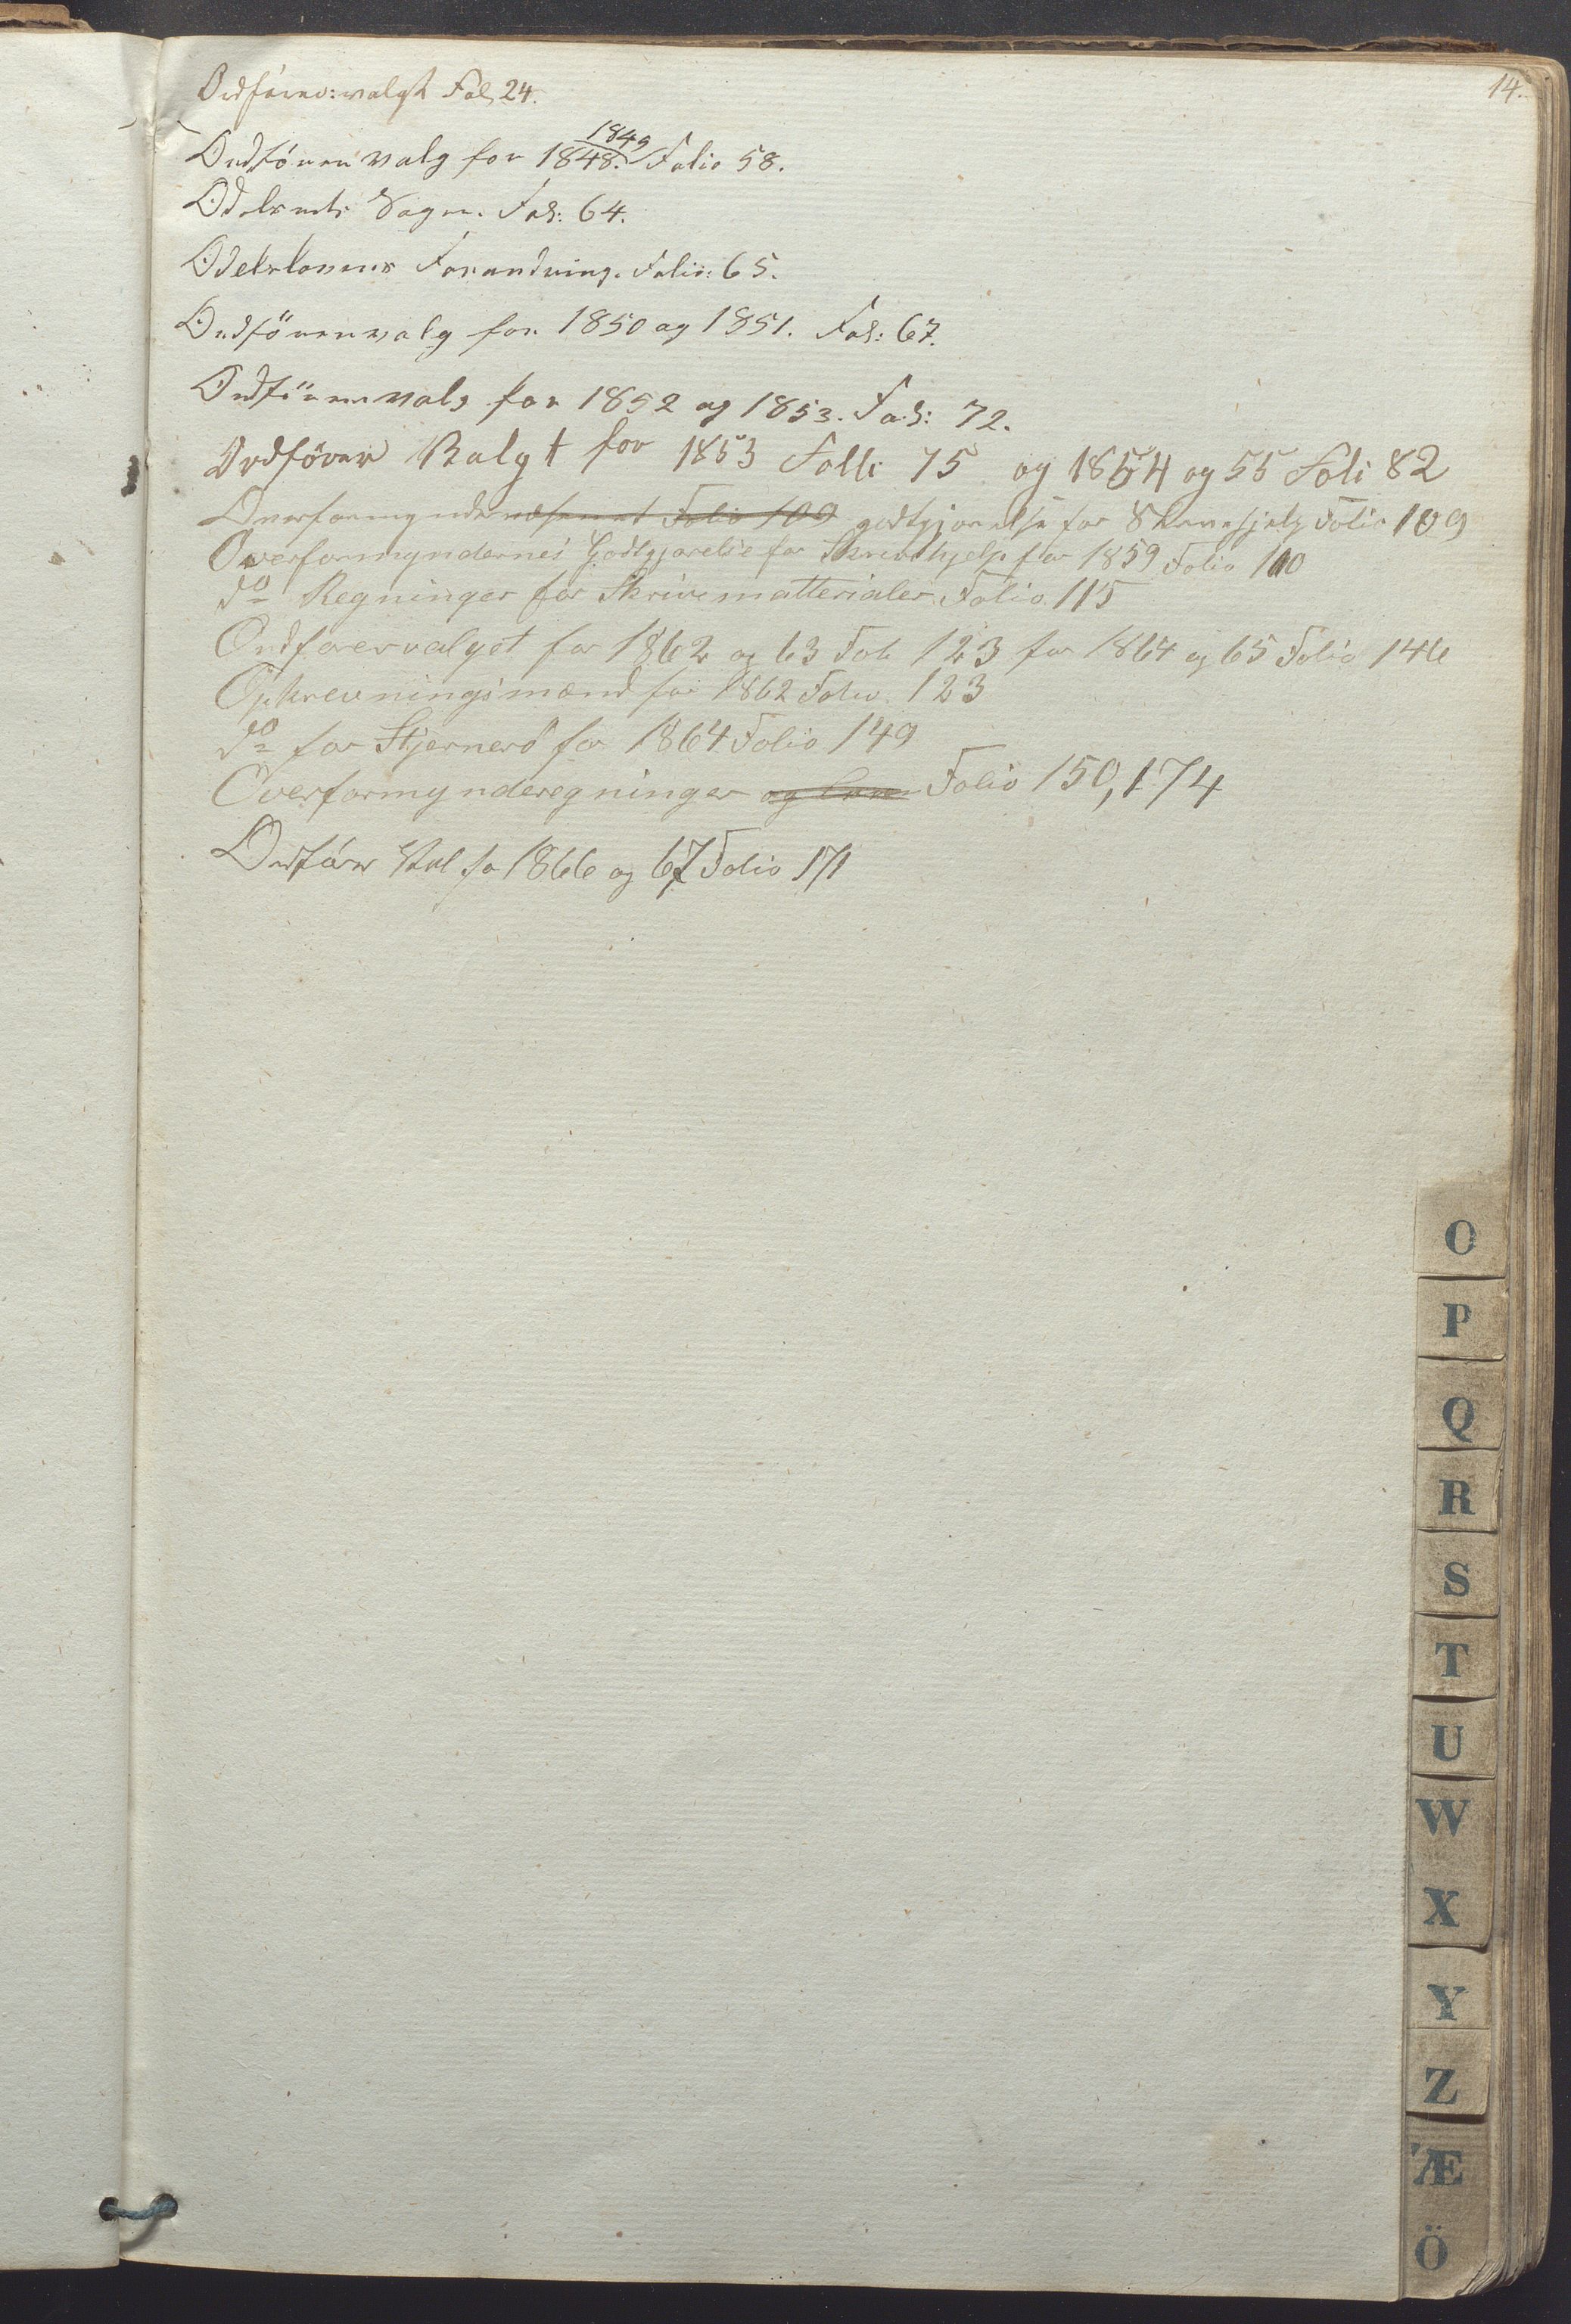 14.
Ordförer valgt Fol 24.
1849
Ordförer valg for 1848. Folio 58.
Odelsrets Sagen. Fol: 64.
Odelslovens Forandring. Folio: 65.
Ordförervalg for 1850 og 1851. Fol: 67.
Ordförervalg for 1852 og 1853. Fol: 72.
Ordförer Valgt for 1853 Folli 75 og 1854 og 55 Foli 82
Overformynder Folio 109 godtgjørelse for Skrivehjelp Folio 109
Overformyndernes Godtgjørelse for Skrivehjelp for 1859 Folio 110
do Regninger for Skrivematterialer Folio 115
Ordførervalget for 1862 og 63 Fol 123 for 1864 og 65 Folio 146
Opkrevningsmænd for 1862 Folio 123
do for Stjernerö for 1864 Folio 149
Overformynderegninger og Folio 150, 174
Ordförer Val for 1866 og 67 Folio 171
O
P
Q
R
S
T
U
W
X
Y
Z
Æ
Ö